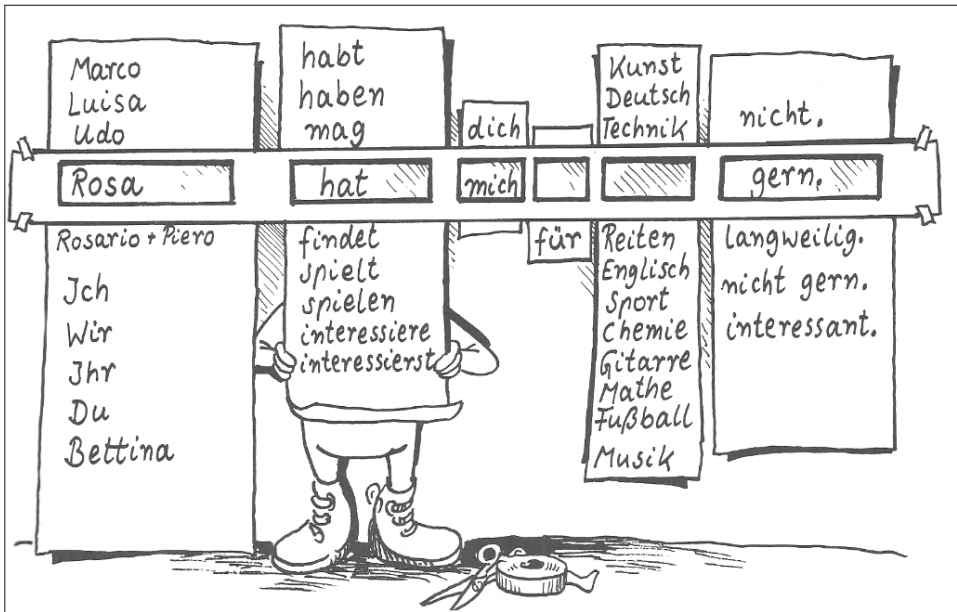 Marco
Luisa
Udo
Rosa
Rosario + Piero
Ich
Wir
Ihr
Du
Bettina
habt
haben
mag
hat
findet
spielt
spielen
interessiere
interessierst
dich
mich
für
Kunst
Deutsch
Technik
Reiten
Englisch
Sport
Chemie
Gitarre
Mathe
Fußball
Musik
nicht.
gern.
langweilig.
nicht gern.
interessant.